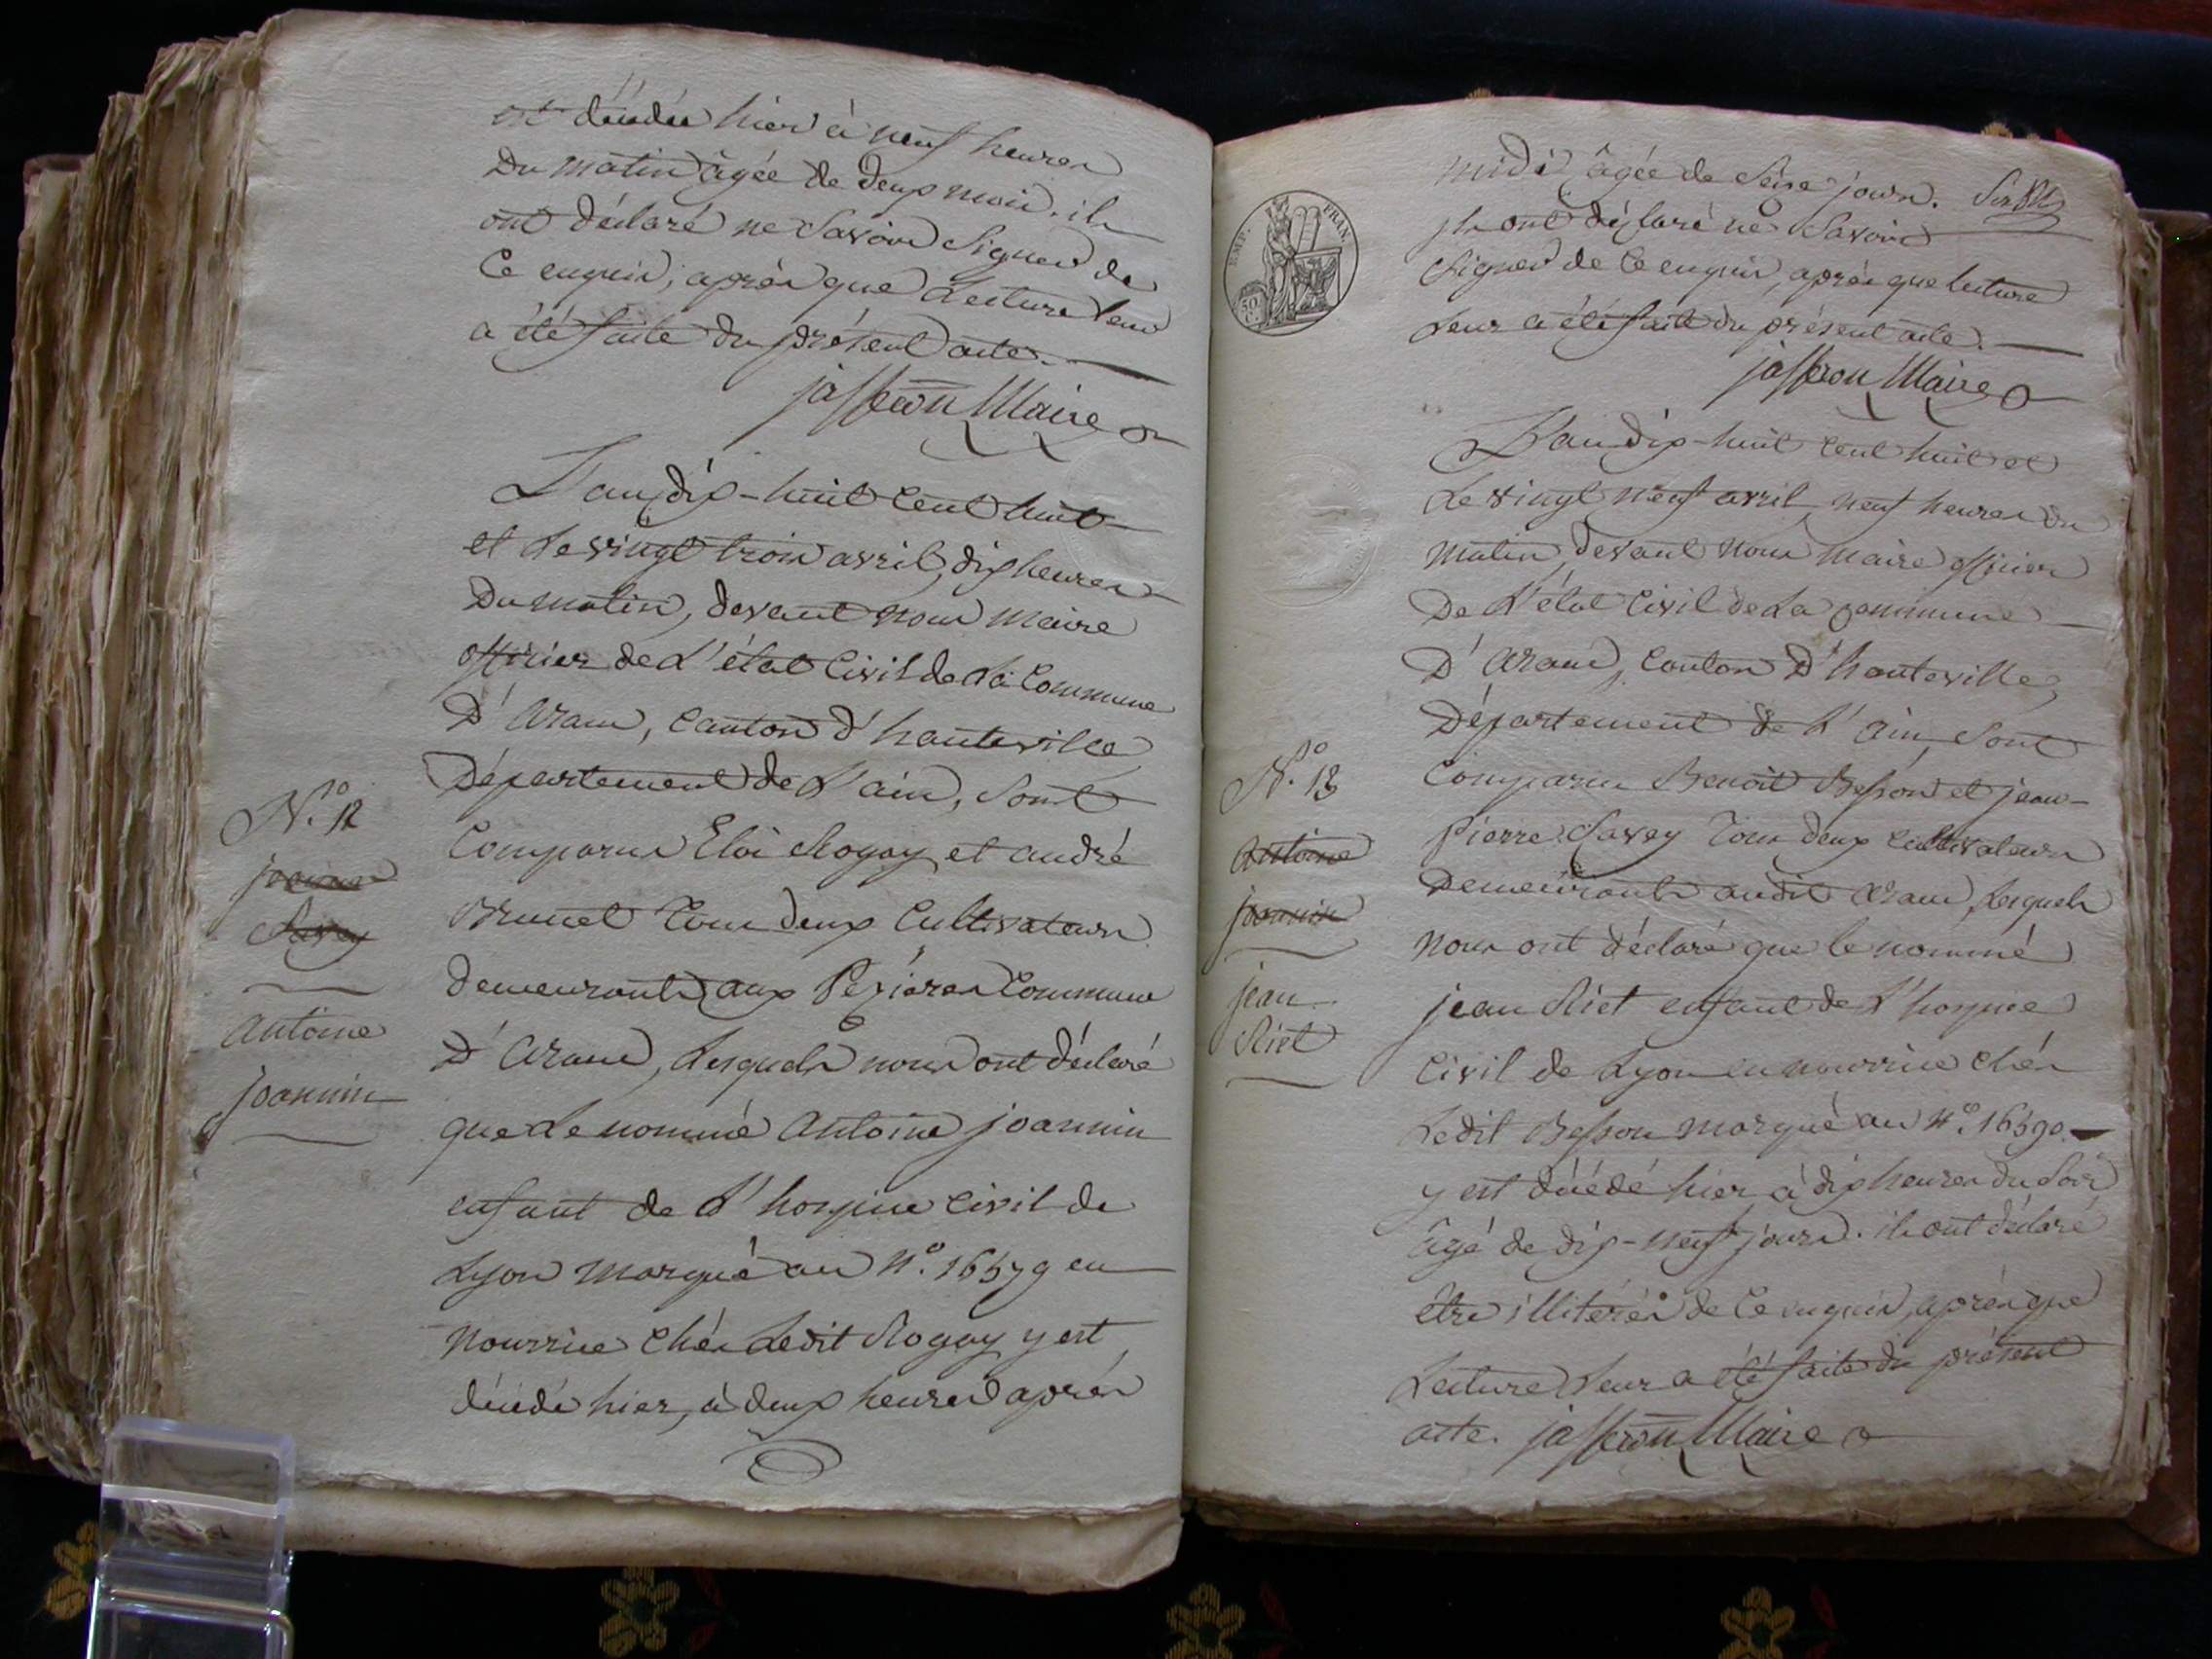 est décédée hier à neuf heures
Du matin âgée de deux mois. ils
ont déclaré ne Savoir Signer de
Ce enquis, après que Lecture leur
a été faite du présent acte.
jasseron Maire
L'an dix-huit Cent huit
et Le vingt trois avril, dix heures
Du matin, devant nous Maire
officier de L'état Civil de La Commune
D'Aranc, Canton d'hauteville
Département de L'ain, Sont
N.o 12
Comparus Eloi Rogay et andré
Brunet Tous deux Cultivateurs
Savey
demeurants aux Pézières Commune
antoine
D'Aranc, Lesquels nous ont déclaré
joannin
que Le nommé antoine joannin
enfant de L'hospice Civil de
Lyon marqué au N.o 16579 en
nourrice chés Ledit Rogay y est
décédé hier, à deux heures après
EMP. FRAN.
50
midi âgée de Seise jours.
ils ont déclaré ne Savoir
Signer de Ce enquis, après que lecture
Leur a été faite du présent acte.
jasseron Maire
L'an dix-huit Cent huit et
Le vingt neuf avril neuf heures du
matin, devant nous maire officier
De L'état Civil de La Commune
D'Aranc, Canton D'hauteville,
Département de L'ain, Sont
N.o 13
Comparus Benoît Besson et jean-
Pierre Savey Tous deux Cultivateurs
antoine
Demeurants audit Aranc, Lesquels
joannin
nous ont déclaré que le nommé
jean
Riet
jean Riet enfant de L'hospice
Civil de Lyon en nourrice chés
Ledit Besson marqué au N.o 16590.
y est décédé hier à dix heures du Soir
âgé de dix-neuf jours. ils ont déclaré
être illiterés de Ce enquis, après que
Lecture Leur a été faite du présent
acte. jasseron Maire